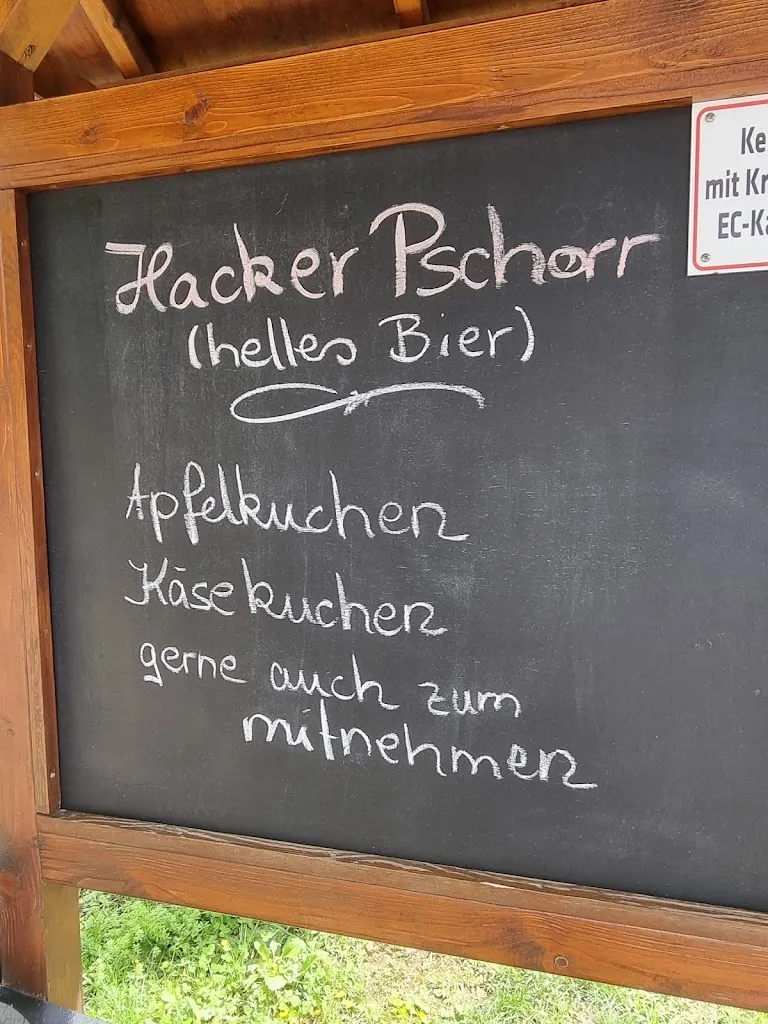 Hacker Pschorr
(helles Bier)
Apfelkuchen
Käsekuchen
gerne auch zum
mitnehmen
Ke
mit Kr
EC-Ka